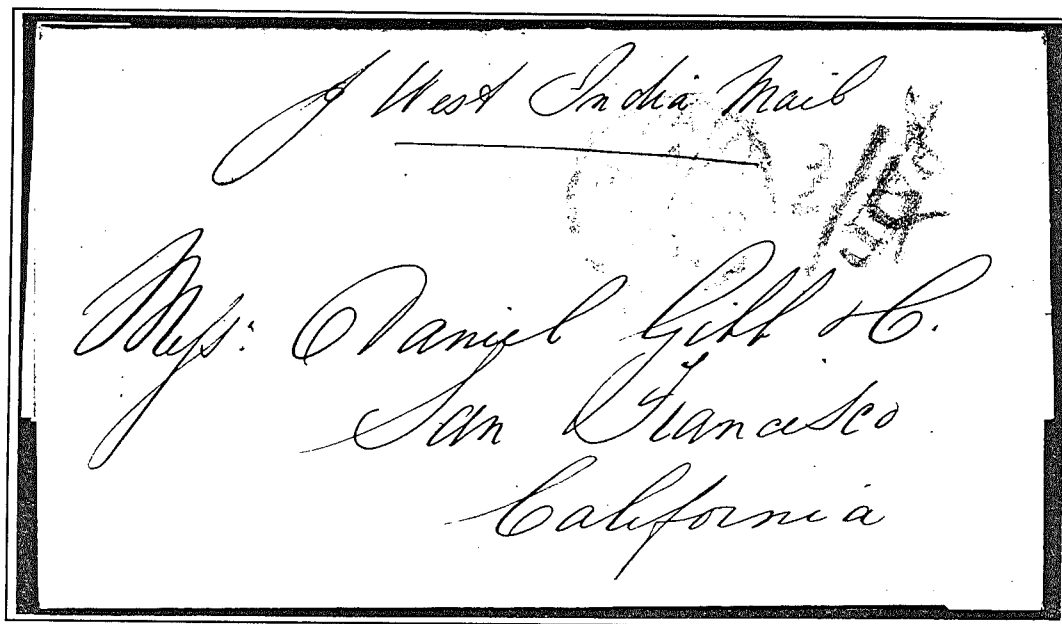 p West India Mail
Mess: Daniel Gibb & C.
San Francisco
California